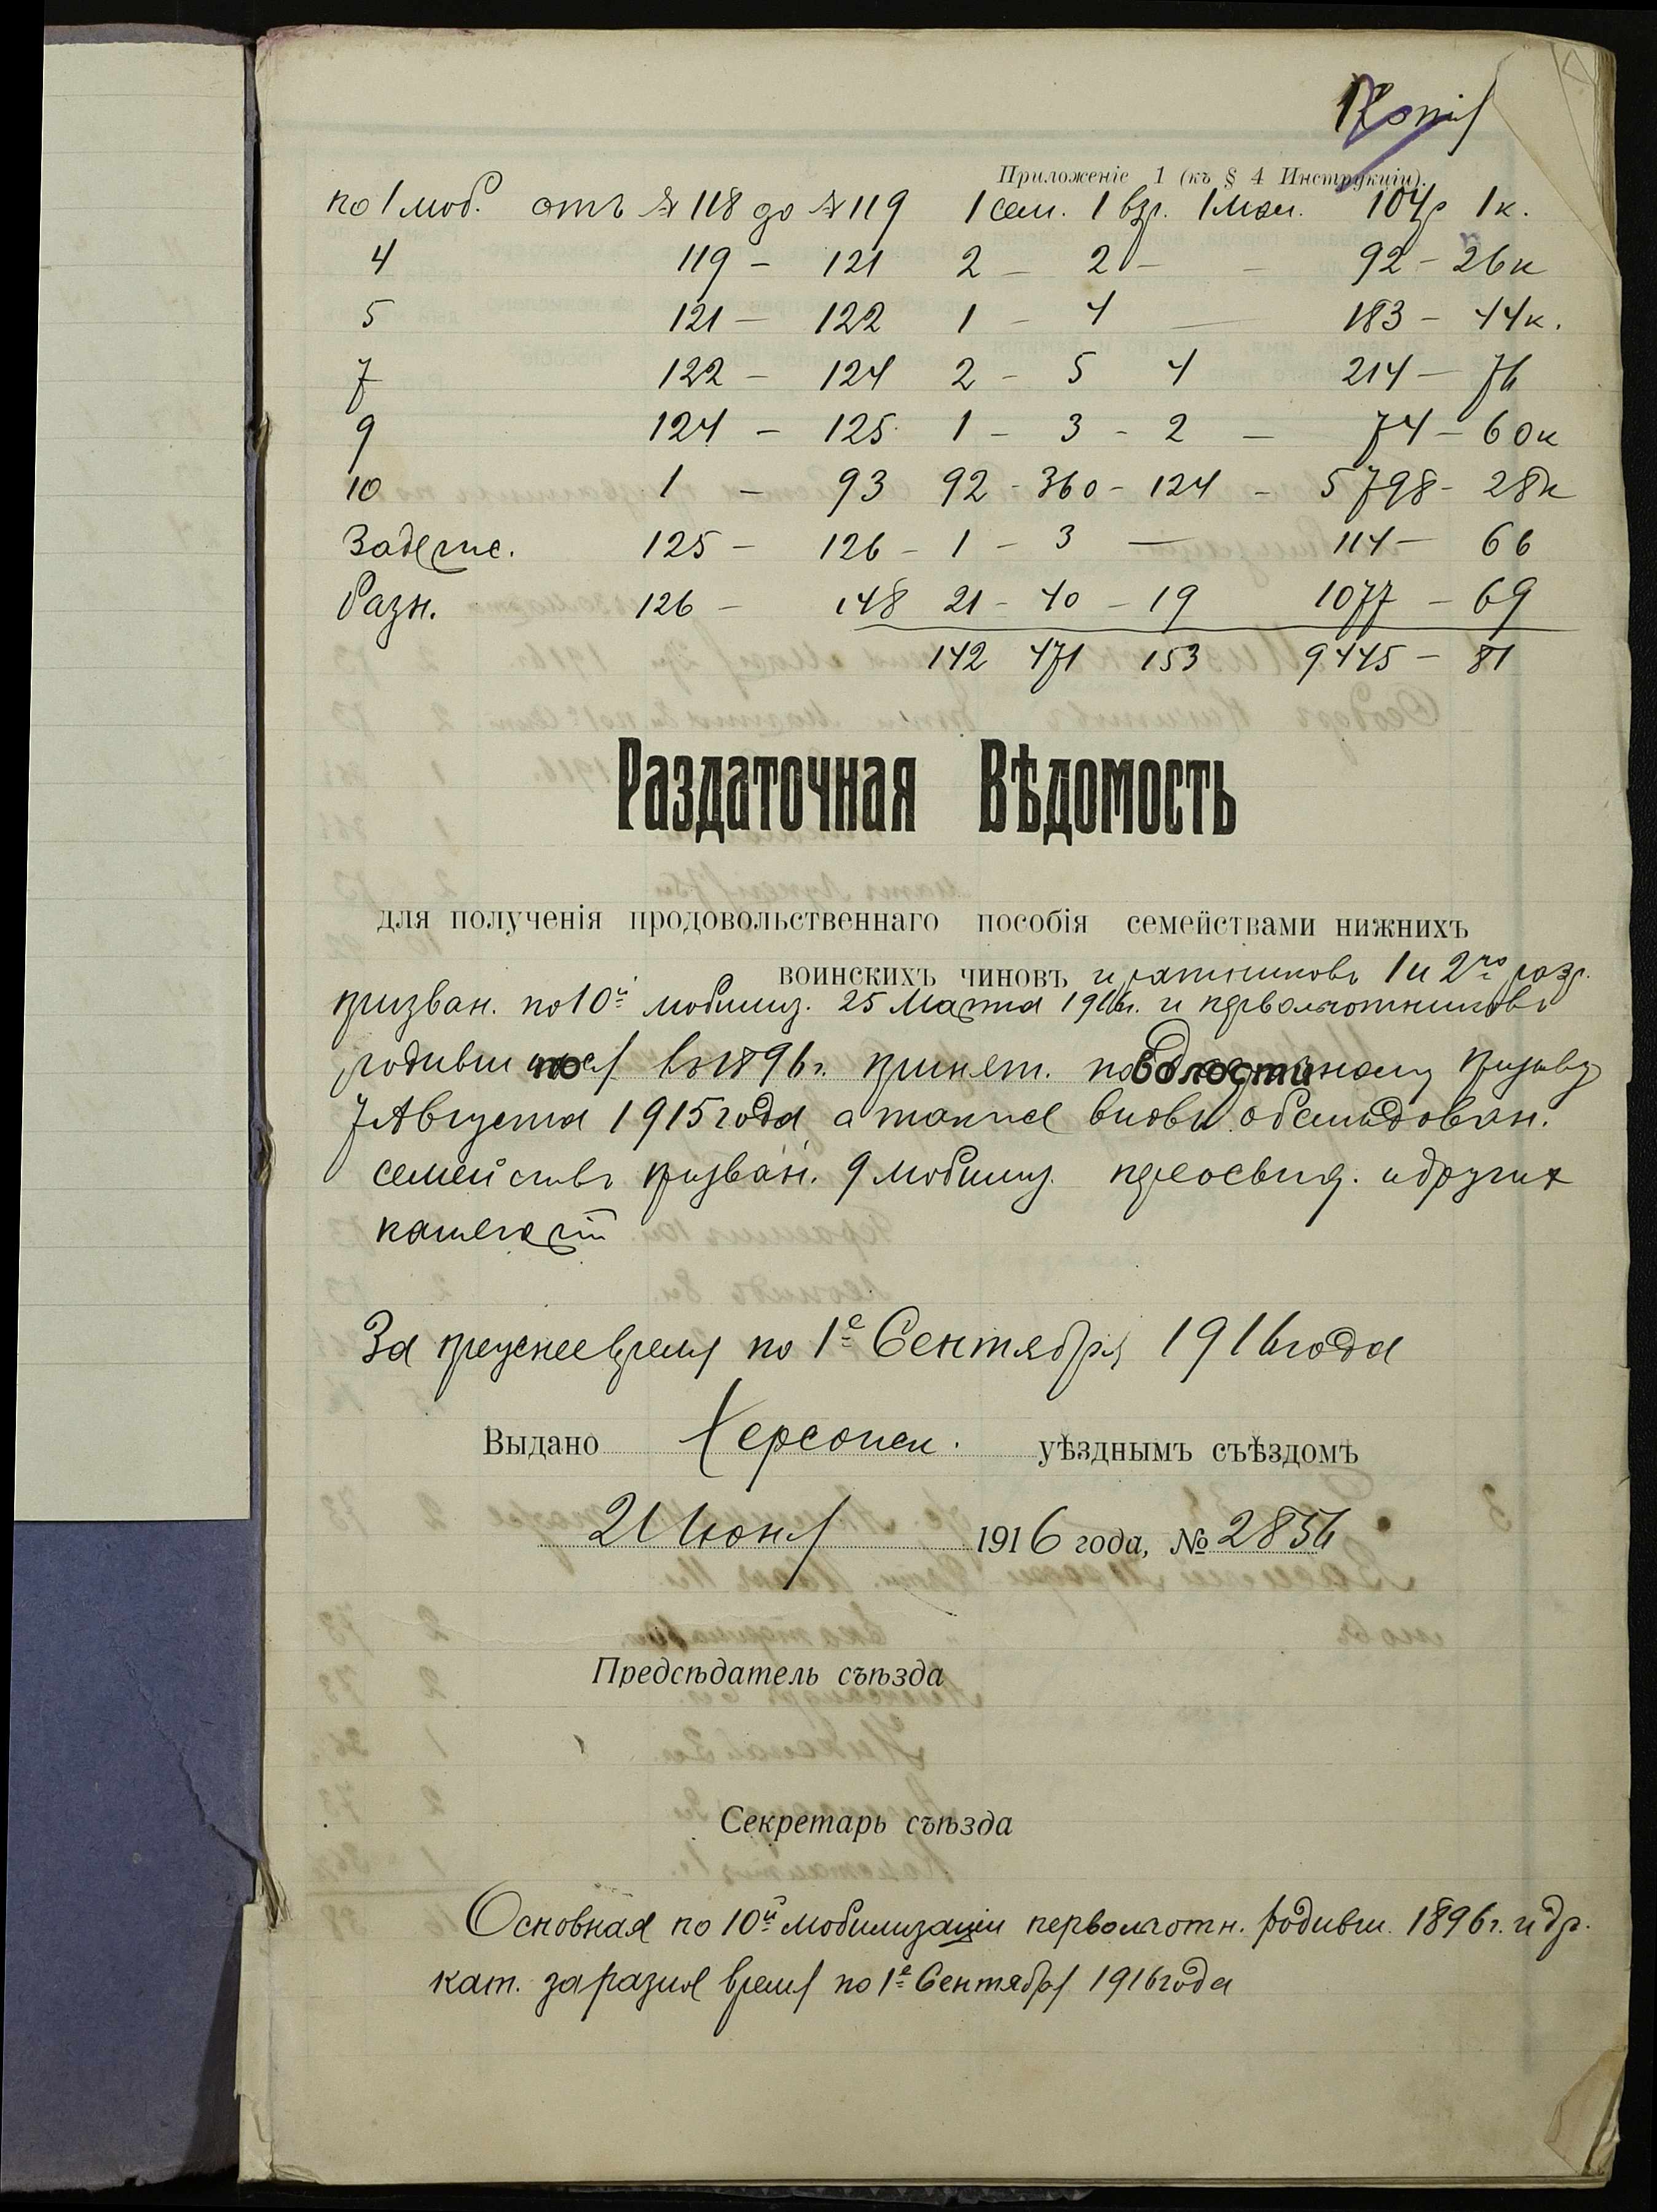 Копія
Приложеніе 1 (къ § 4 Инструкціи).
по 1 моб. отъ № 118 до № 119 1 сем. 1 взр. 1 мал. 104 р 1 к.
4 119 – 121 2 – 2 – – 92 – 26 к
5 121 – 122 1 – 4 — 183 – 44 к.
7 122 – 124 2 – 5 4 214 – 76
9 124 – 125 1 – 3 – 2 – 74 – 60 к
10 1 – 93 92 – 360 – 124 – 5798 – 28 к
Задерж. 125 – 126 – 1 – 3 — 114 – 66
Разн. 126 – 148 21 – 40 – 19 1077 – 69
142 471 153 9445 – 81
Раздаточная Вѣдомость
для полученія продовольственнаго пособія семействами нижнихъ
воинскихъ чиновъ и ратниковъ 1 и 2го разр.
призван. по 10й мобилиз. 25 Марта 1916 г. и перволѣтниковъ
родивш по въ 1896 г. принят. по волости призыву
7 Августа 1915 года а также вновь обслѣдован.
семействъ призван. 9 мобилиз. переосвид. и другихъ
категорій
За прежнее время по 1е Сентября 1916 года
Выдано Херсонск. уѣзднымъ съѣздомъ
21 Іюня 1916 года, № 2856
Предсѣдатель съѣзда
Секретарь съѣзда
Основная по 10й мобилизаціи перволѣтн. родивш. 1896 г. и др.
кат. за разное время по 1е Сентября 1916 года